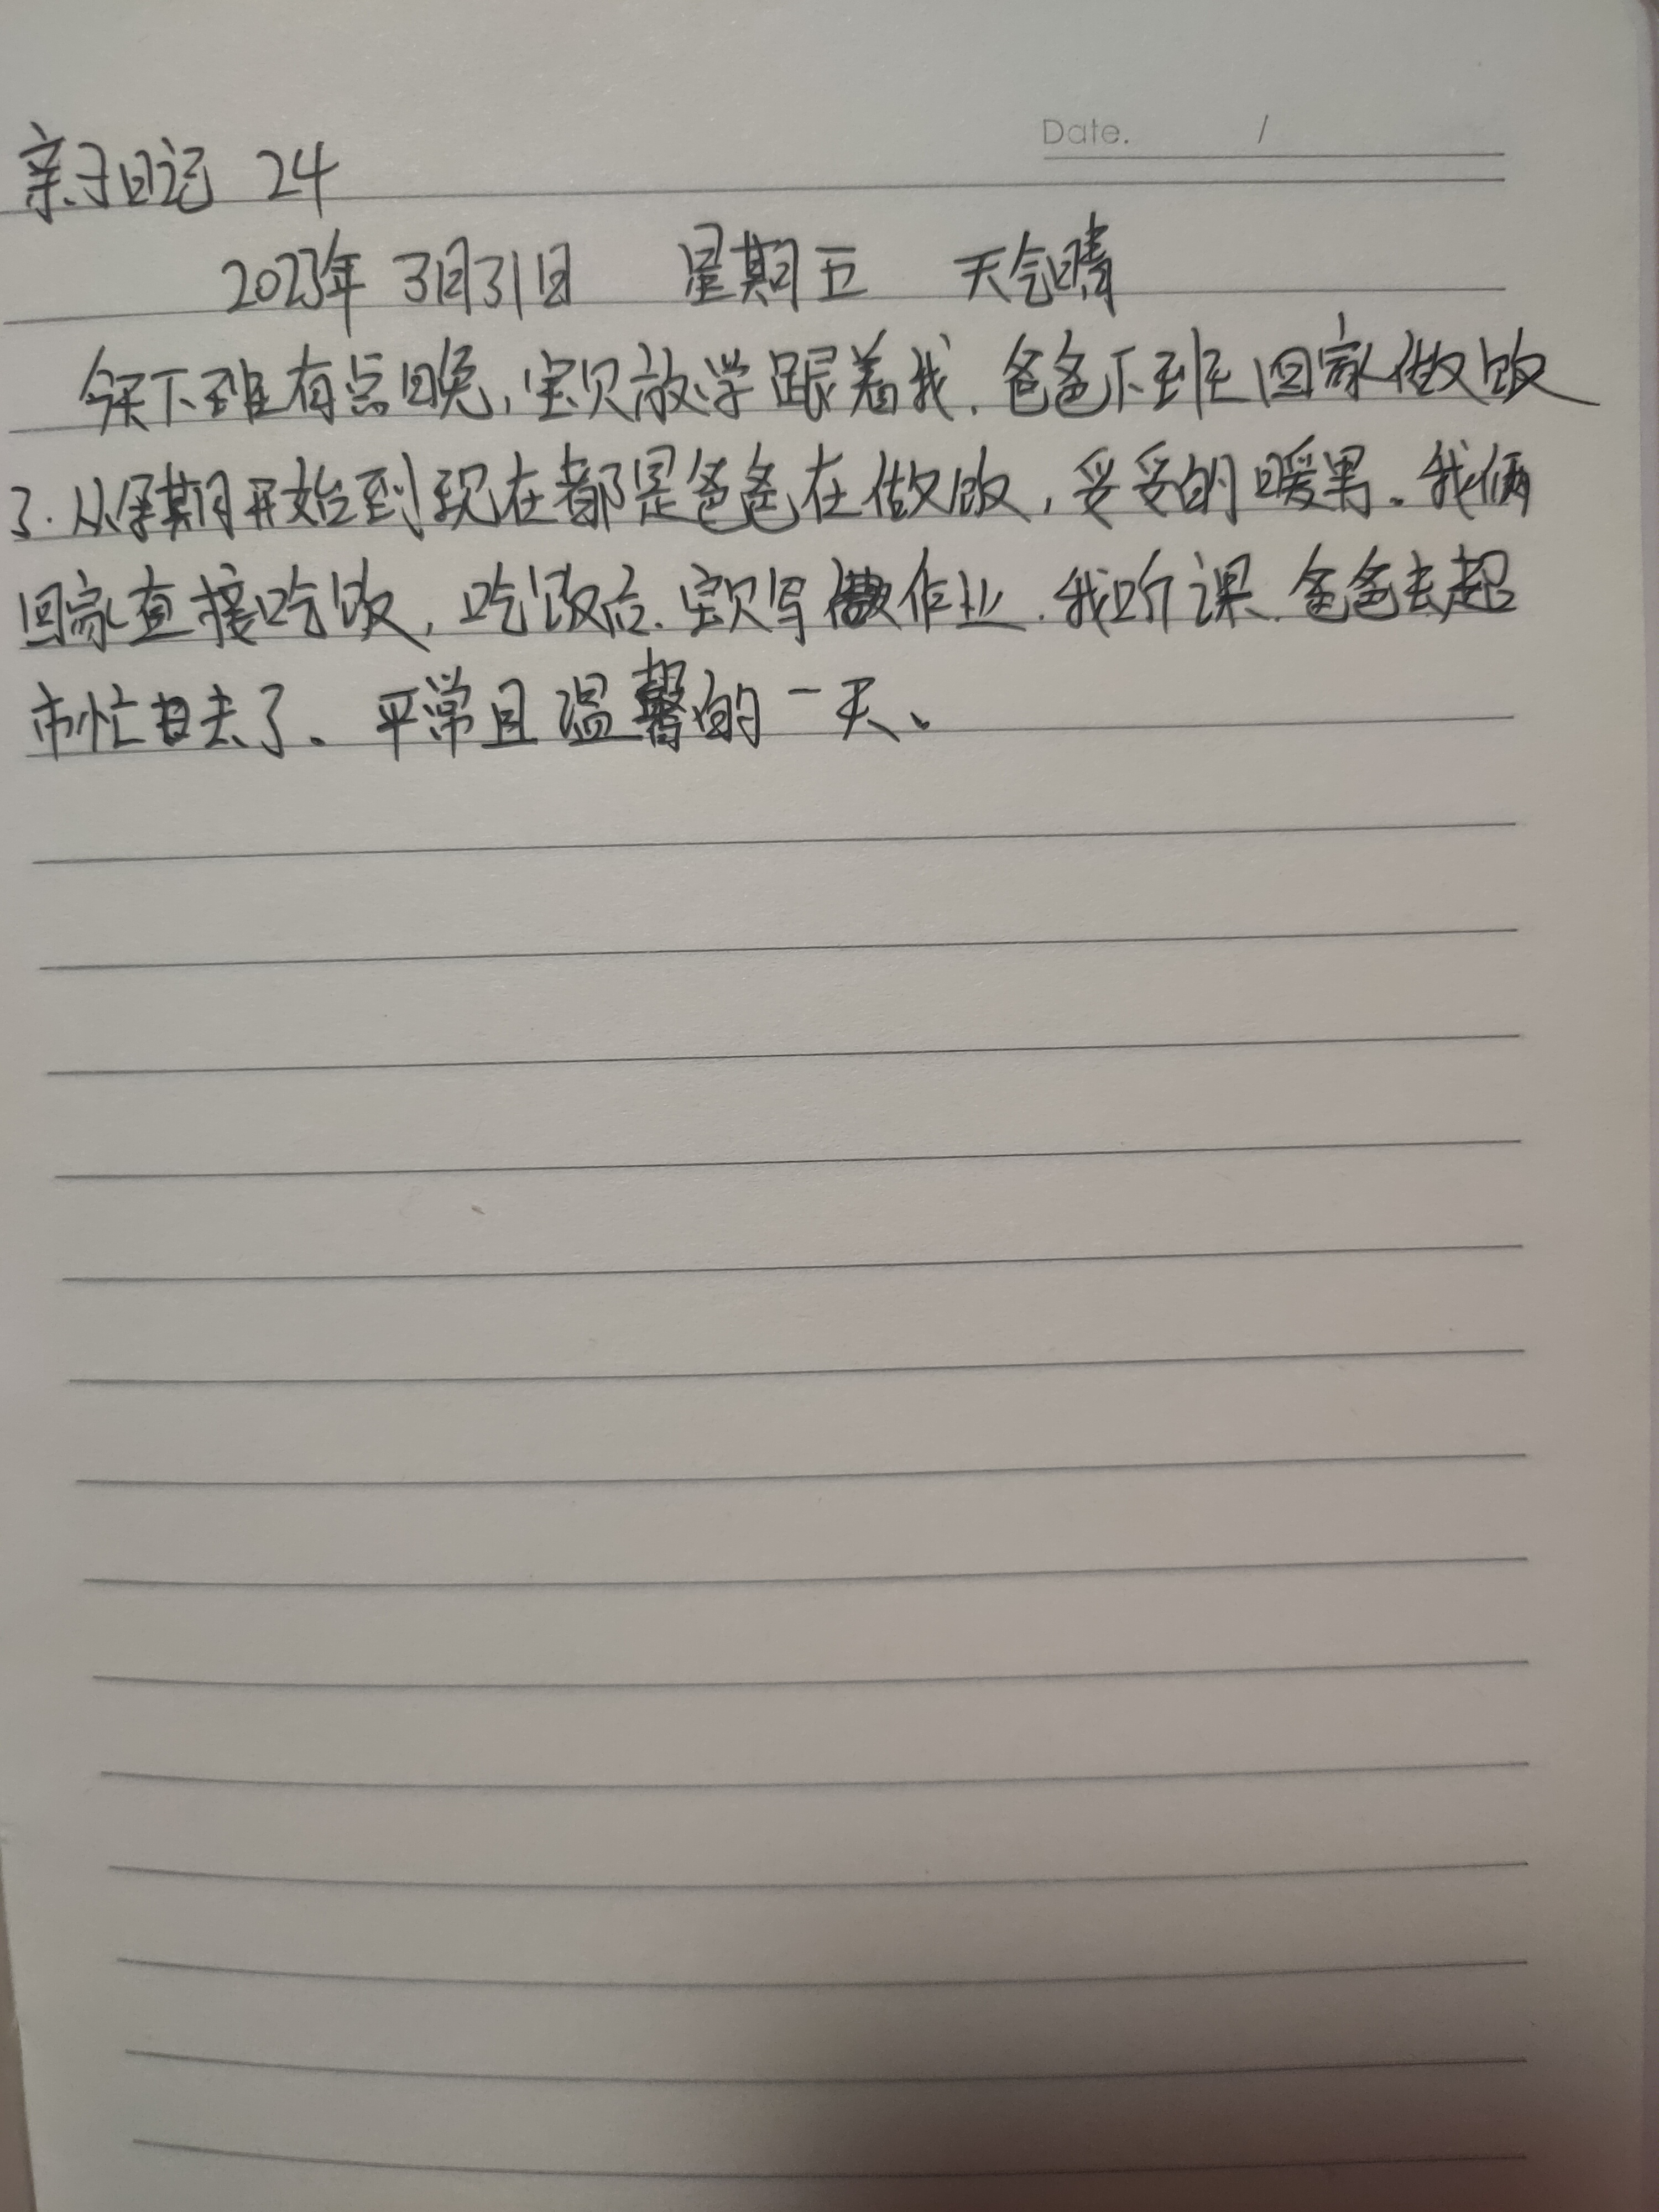 Date. /
亲子日记 24
2023年 3月31日 星期五 天气晴
今天下班有点晚,宝贝放学跟着我.爸爸下班回家做饭
了.从学期开始到现在都是爸爸在做饭,妥妥的暖男。我俩
回家直接吃饭,吃饭后.宝贝写作业.我听课.爸爸去超
市忙去了。平常且温馨的一天、